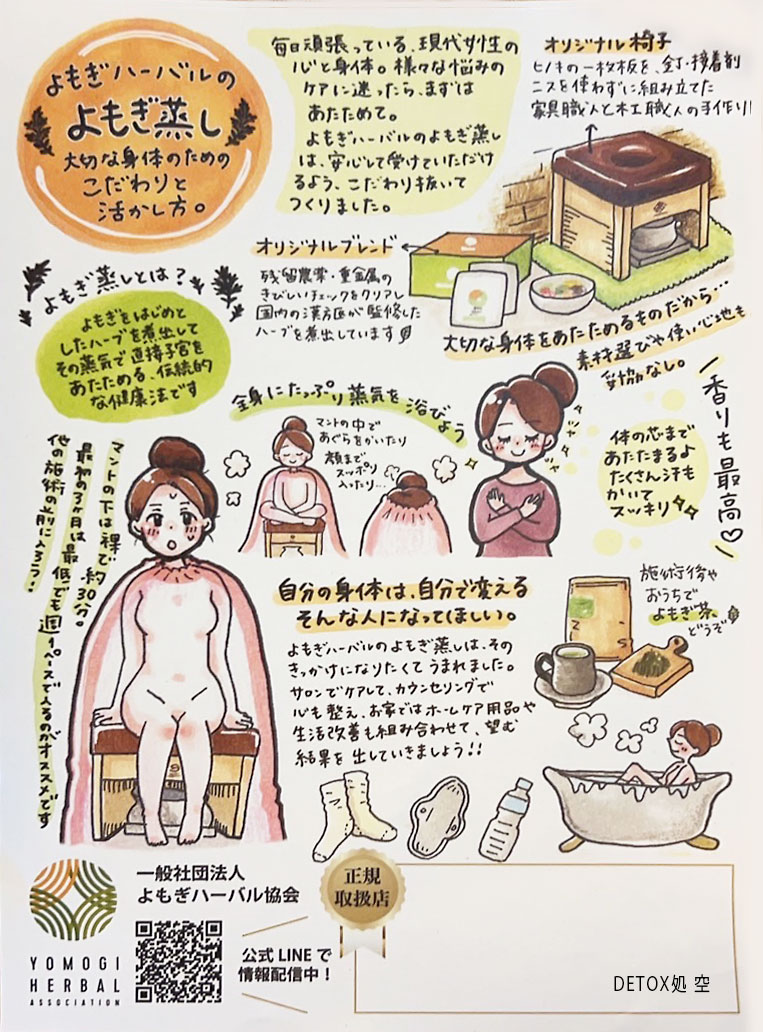 よもぎハーバルの
よもぎ蒸し
大切な身体のための
こだわりと
活かし方。
毎日頑張っている、現代女性の
心と身体。様々な悩みの
ケアに迷ったら、まずは
あたためて。
よもぎハーバルのよもぎ蒸し
は、安心して受けていただけ
るよう、こだわり抜いて
つくりました。
オリジナル椅子
ヒノキの一枚板を、釘・接着剤
ニスを使わずに組み立てた
家具職人と木工職人の手作り!
オリジナルブレンド
残留農薬・重金属の
きびしいチェックをクリアし
国内の漢方医が監修した
ハーブを煮出しています
大切な身体をあたためるものだから…
素材選びや使い心地も
妥協なし。
よもぎ蒸しとは?
よもぎをはじめと
したハーブを煮出して
その蒸気で直接子宮を
あたためる、伝統的
な健康法です
全身にたっぷり蒸気を浴びよう
マントの中で
あぐらをかいたり
顔まで
スッポリ
入ったり…
香りも最高♡
体の芯まで
あたたまるよ
たくさん汗も
かいて
スッキリ
マントの下は裸で約30分。
最初の3ヶ月は最低でも週1ペースで入るのがオススメです
他の施術の前に入ろう!
自分の身体は、自分で変える
そんな人になってほしい。
よもぎハーバルのよもぎ蒸しは、その
きっかけになりたくてうまれました。
サロンでケアして、カウンセリングで
心も整え、お家ではホームケア用品や
生活改善も組み合わせて、望む
結果を出していきましょう!!
施術後や
おうちで
よもぎ茶、
どうぞ
一般社団法人
よもぎハーバル協会
YOMOGI
HERBAL
ASSOCIATION
公式LINEで
情報配信中!
正規
取扱店
DETOX処 空